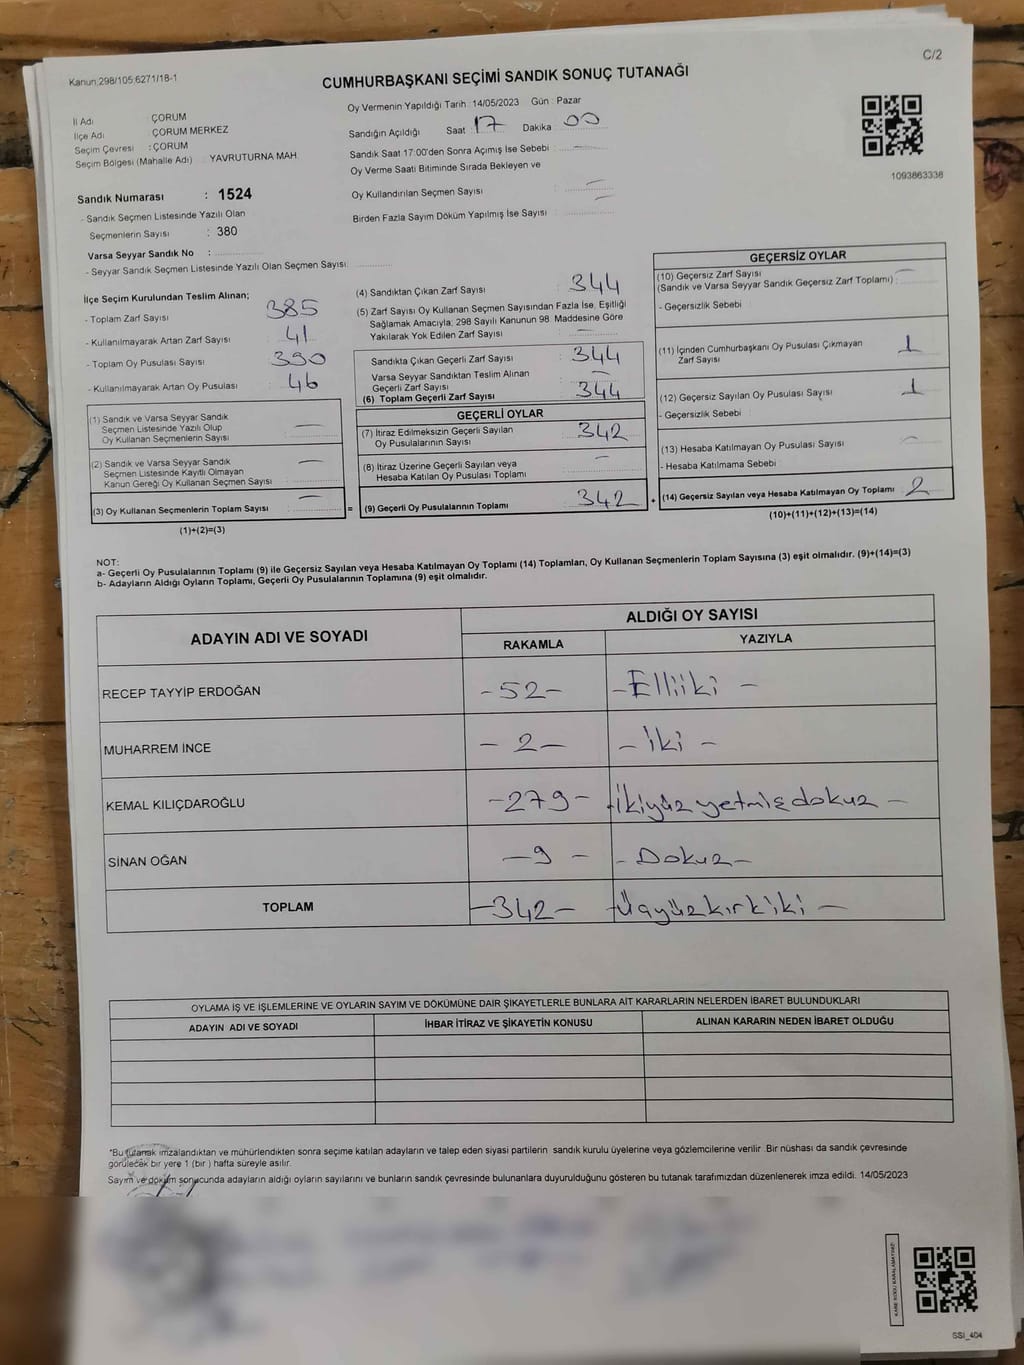 Kanun 298/105,6271/18-1
C/2
CUMHURBAŞKANI SEÇİMİ SANDIK SONUÇ TUTANAĞI
İl Adı : ÇORUM
İlçe Adı : ÇORUM MERKEZ
Seçim Çevresi : ÇORUM
Seçim Bölgesi (Mahalle Adı) : YAVRUTURNA MAH
Sandık Numarası : 1524
- Sandık Seçmen Listesinde Yazılı Olan
Seçmenlerin Sayısı : 380
Varsa Seyyar Sandık No :
- Seyyar Sandık Seçmen Listesinde Yazılı Olan Seçmen Sayısı:
Oy Vermenin Yapıldığı Tarih :14/05/2023 Gün : Pazar
Sandığın Açıldığı Saat : 17 Dakika : 00
Sandık Saat 17:00'den Sonra Açımış İse Sebebi : —
Oy Verme Saati Bitiminde Sırada Bekleyen ve
Oy Kullandırılan Seçmen Sayısı : —
Birden Fazla Sayım Döküm Yapılmış İse Sayısı : —
1093863338
İlçe Seçim Kurulundan Teslim Alınan;
- Toplam Zarf Sayısı : 385
- Kullanılmayarak Artan Zarf Sayısı : 41
- Toplam Oy Pusulası Sayısı : 390
- Kullanılmayarak Artan Oy Pusulası : 46
(1) Sandık ve Varsa Seyyar Sandık
Seçmen Listesinde Yazılı Olup
Oy Kullanan Seçmenlerin Sayısı : —
(2) Sandık ve Varsa Seyyar Sandık
Seçmen Listesinde Kayıtlı Olmayan
Kanun Gereği Oy Kullanan Seçmen Sayısı : —
(3) Oy Kullanan Seçmenlerin Toplam Sayısı : —
(1)+(2)=(3)
(4) Sandıktan Çıkan Zarf Sayısı : 344
(5) Zarf Sayısı Oy Kullanan Seçmen Sayısından Fazla İse, Eşitliği
Sağlamak Amacıyla; 298 Sayılı Kanunun 98. Maddesine Göre
Yakılarak Yok Edilen Zarf Sayısı : —
Sandıkta Çıkan Geçerli Zarf Sayısı : 344
Varsa Seyyar Sandıktan Teslim Alınan
Geçerli Zarf Sayısı : —
(6) Toplam Geçerli Zarf Sayısı : 344
GEÇERLİ OYLAR
(7) İtiraz Edilmeksizin Geçerli Sayılan
Oy Pusulalarının Sayısı : 342
(8) İtiraz Üzerine Geçerli Sayılan veya
Hesaba Katılan Oy Pusulası Toplamı : —
= (9) Geçerli Oy Pusulalarının Toplamı : 342 +
GEÇERSİZ OYLAR
(10) Geçersiz Zarf Sayısı
(Sandık ve Varsa Seyyar Sandık Geçersiz Zarf Toplamı) : —
- Geçersizlik Sebebi :
(11) İçinden Cumhurbaşkanı Oy Pusulası Çıkmayan
Zarf Sayısı : 1
(12) Geçersiz Sayılan Oy Pusulası Sayısı : 1
- Geçersizlik Sebebi :
(13) Hesaba Katılmayan Oy Pusulası Sayısı : —
- Hesaba Katılmama Sebebi :
(14) Geçersiz Sayılan veya Hesaba Katılmayan Oy Toplamı : 2
(10)+(11)+(12)+(13)=(14)
NOT:
a- Geçerli Oy Pusulalarının Toplamı (9) ile Geçersiz Sayılan veya Hesaba Katılmayan Oy Toplamı (14) Toplamları, Oy Kullanan Seçmenlerin Toplam Sayısına (3) eşit olmalıdır. (9)+(14)=(3)
b- Adayların Aldığı Oyların Toplamı, Geçerli Oy Pusulalarının Toplamına (9) eşit olmalıdır.
ADAYIN ADI VE SOYADI
ALDIĞI OY SAYISI
RAKAMLA YAZIYLA
RECEP TAYYİP ERDOĞAN -52- -Elliiki-
MUHARREM İNCE -2- -İki-
KEMAL KILIÇDAROĞLU -279- -İkiyüzyetmişdokuz-
SİNAN OĞAN -9- -Dokuz-
TOPLAM -342- -Üçyüzkırkiki-
OYLAMA İŞ VE İŞLEMLERİNE VE OYLARIN SAYIM VE DÖKÜMÜNE DAİR ŞİKAYETLERLE BUNLARA AİT KARARLARIN NELERDEN İBARET BULUNDUKLARI
ADAYIN ADI VE SOYADI İHBAR İTİRAZ VE ŞİKAYETİN KONUSU ALINAN KARARIN NEDEN İBARET OLDUĞU
*Bu tutanak imzalandıktan ve mühürlendikten sonra seçime katılan adayların ve talep eden siyasi partilerin sandık kurulu üyelerine veya gözlemcilerine verilir. Bir nüshası da sandık çevresinde
görülecek bir yere 1 (bir) hafta süreyle asılır.
Sayım ve döküm sonucunda adayların aldığı oyların sayılarını ve bunların sandık çevresinde bulunanlara duyurulduğunu gösteren bu tutanak tarafımızdan düzenlenerek imza edildi. 14/05/2023
KARE KODU KARALAMAYINIZ
SSI_404